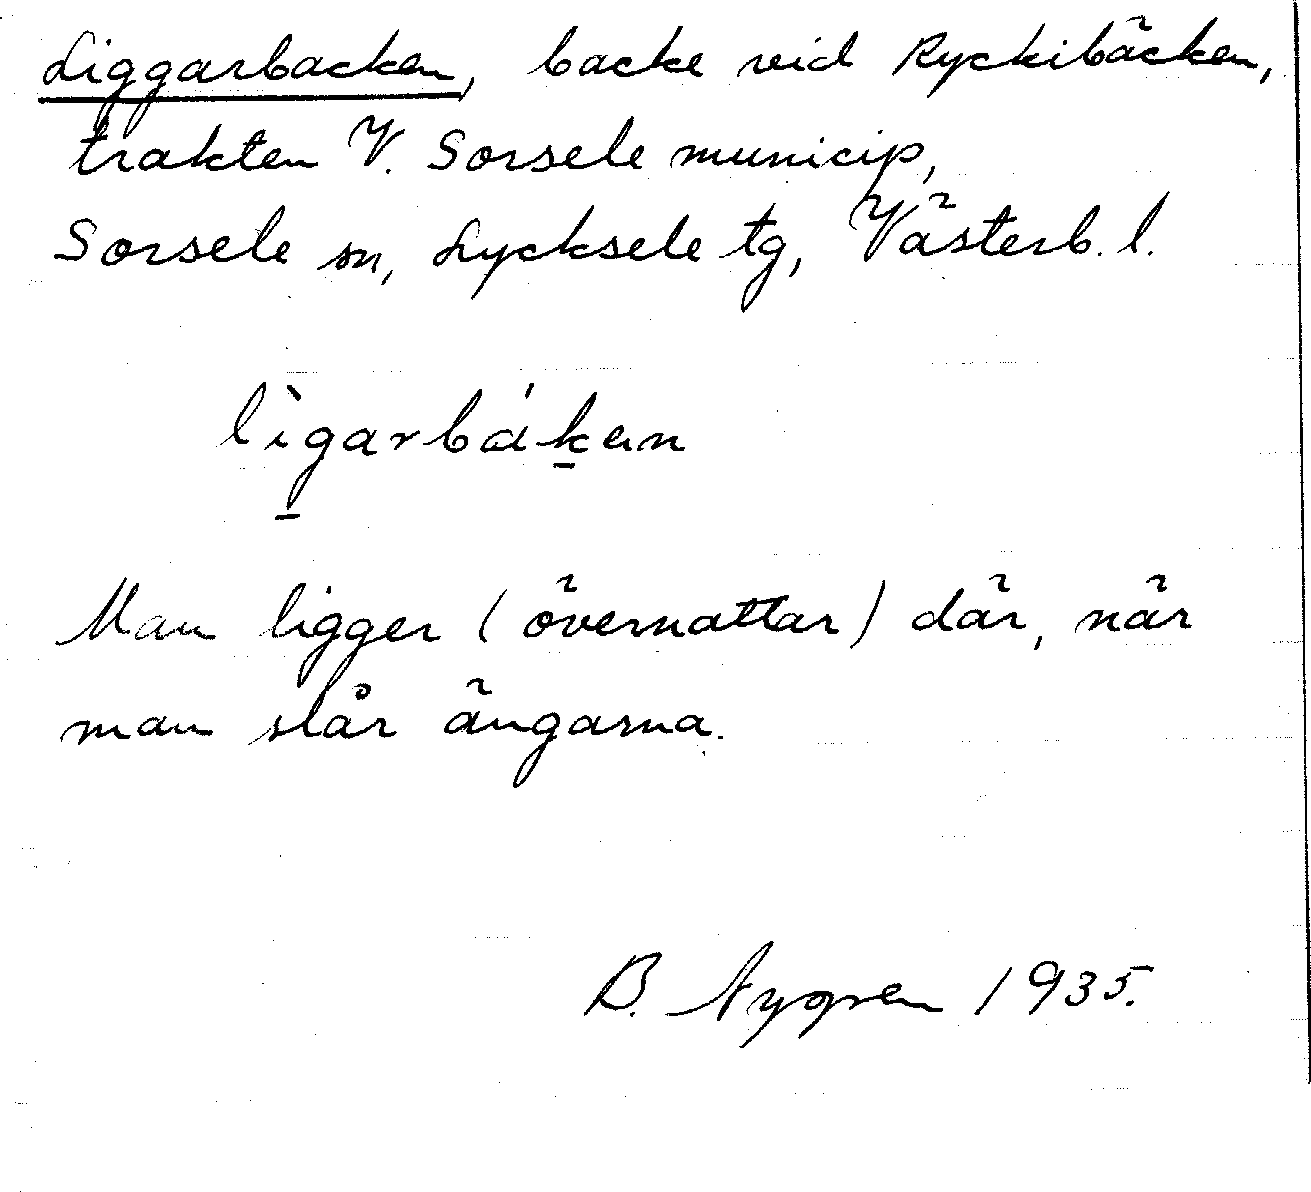 Liggarbacken, backe vid Ryckibäcken,
trakten V. Sorsele municip,
Sorsele sn, Lycksele tg, Västerb. l.
lìg̲arbák̲en
Man ligger (övernattar) där, när
man slår ängarna.
B. Nygren 1935.